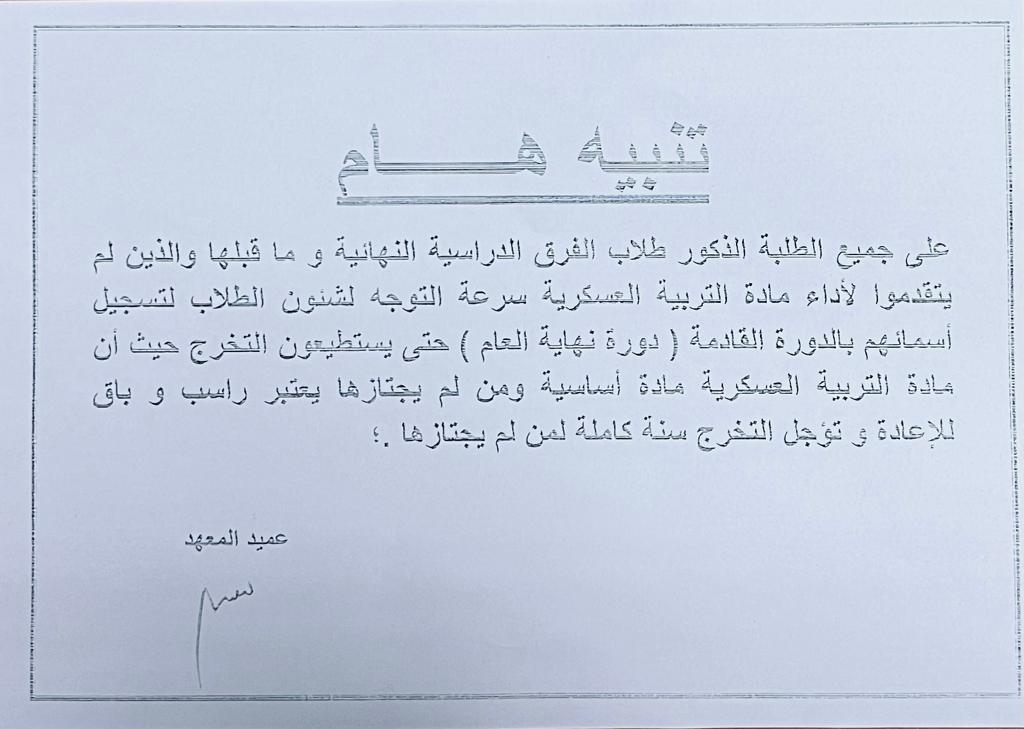 تنبيه هـــــــام
على جميع الطلبة الذكور طلاب الفرق الدراسية النهائية و ما قبلها والذين لم
يتقدموا لأداء مادة التربية العسكرية سرعة التوجه لشئون الطلاب لتسجيل
أسمائهم بالدورة القادمة ( دورة نهاية العام ) حتى يستطيعون التخرج حيث أن
مادة التربية العسكرية مادة أساسية ومن لم يجتازها يعتبر راسب و باق
للإعادة و تؤجل التخرج سنة كاملة لمن لم يجتازها .؛
عميد المعهد